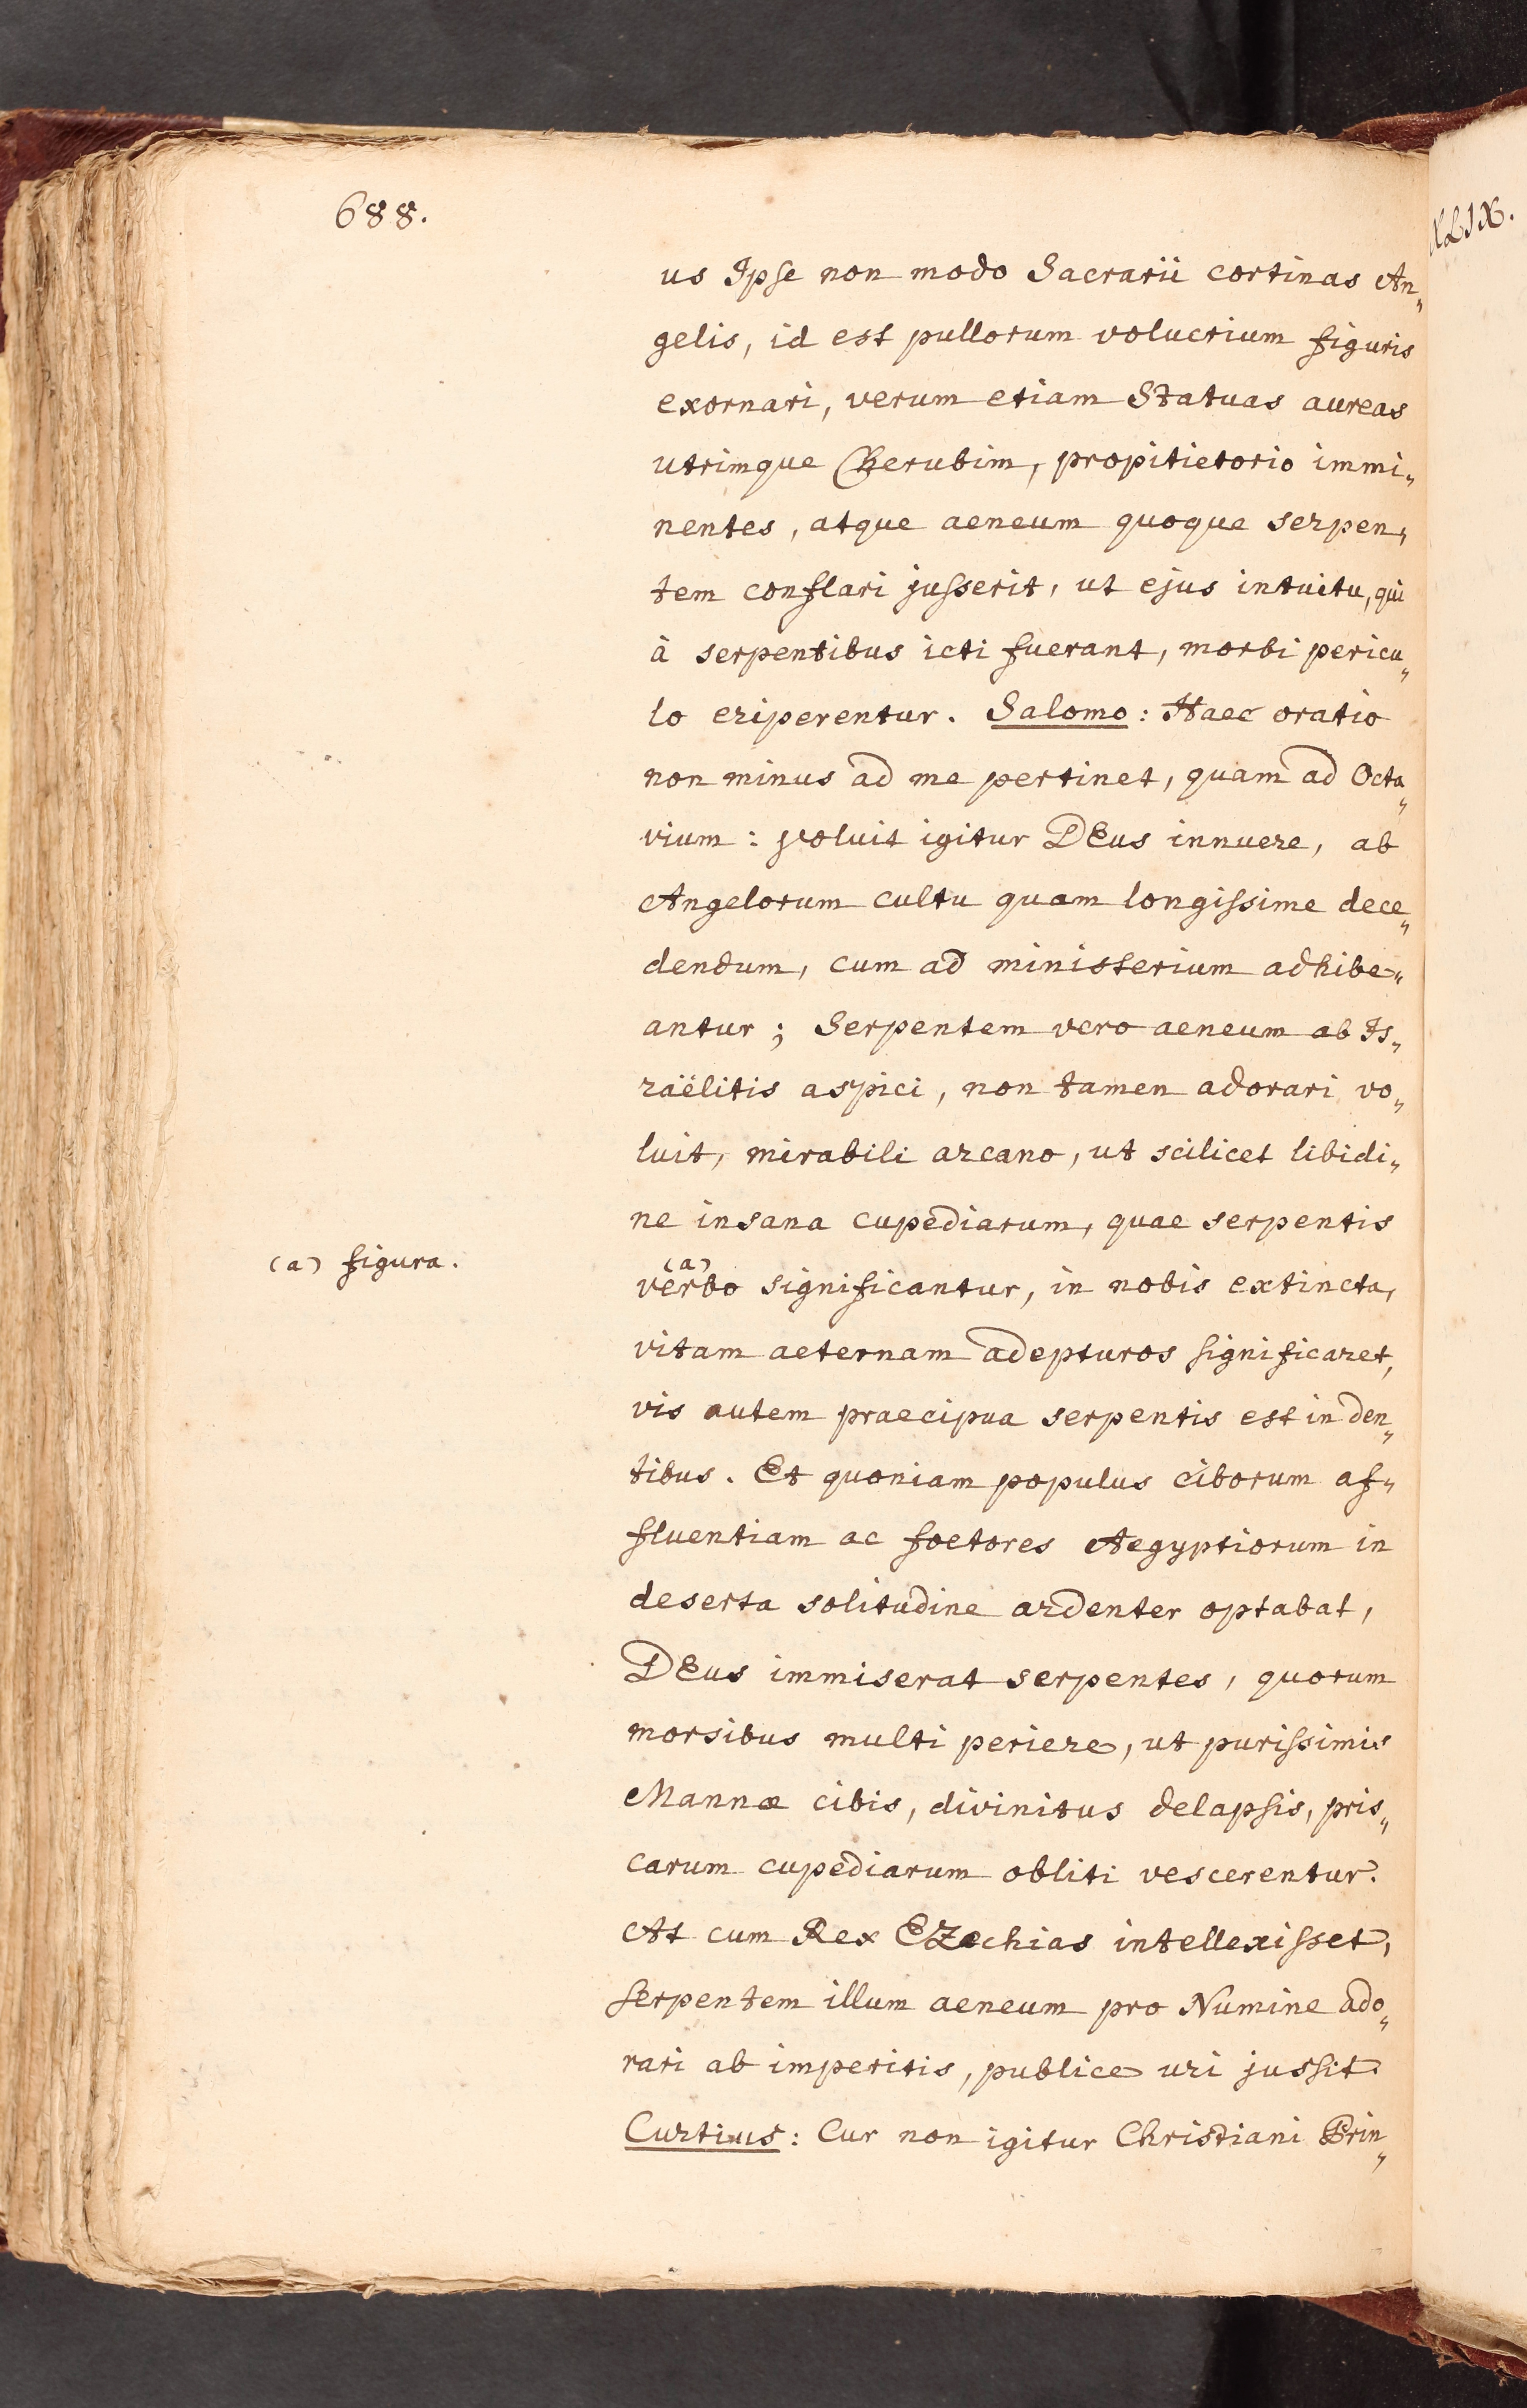 688.
XLIX.
us Ipse non modo Sacrarii cortinas An„
gelis, id est pullorum volucrium figuris
exornari, verum etiam Statuas aureas
utrimque Cherubim, propitietorio immi„
nentes, atque aeneum quoque serpen„
tem conflari jusserit, ut ejus intuitu, qui
à serpentibus icti fuerant, morbi pericu„
lo eriperentur. Salomo: Haec oratio
non minus ad me pertinet, quam ad Octa„
vium: voluit igitur DEus innuere, ab
Angelorum cultu quam longissime dece„
dendum, cum ad ministerium adhibe„
antur; Serpentem vero aeneum ab Is„
raëlitis aspici, non tamen adorari vo„
luit, mirabili arcano, ut scilicet libidi„
ne insana cupediarum, quae serpentis
(a) figura.
verbo (a) significantur, in nobis extincta,
vitam aeternam adepturos significaret,
vis autem praecipua serpentis est in den„
tibus. Et quoniam populus ciborum af„
fluentiam ac foetores Aegyptiorum in
deserta solitudine ardenter optabat,
DEus immiserat serpentes, quorum
morsibus multi periere, ut purissimis
Mannae cibis, divinitus delapsis, pris„
carum cupediarum obliti vescerentur.
At cum Rex EZechias intellexisset,
serpentem illum aeneum pro Numine ado„
rari ab imperitis, publice uri jussit.
Curtius: Cur non igitur Christiani Prin„